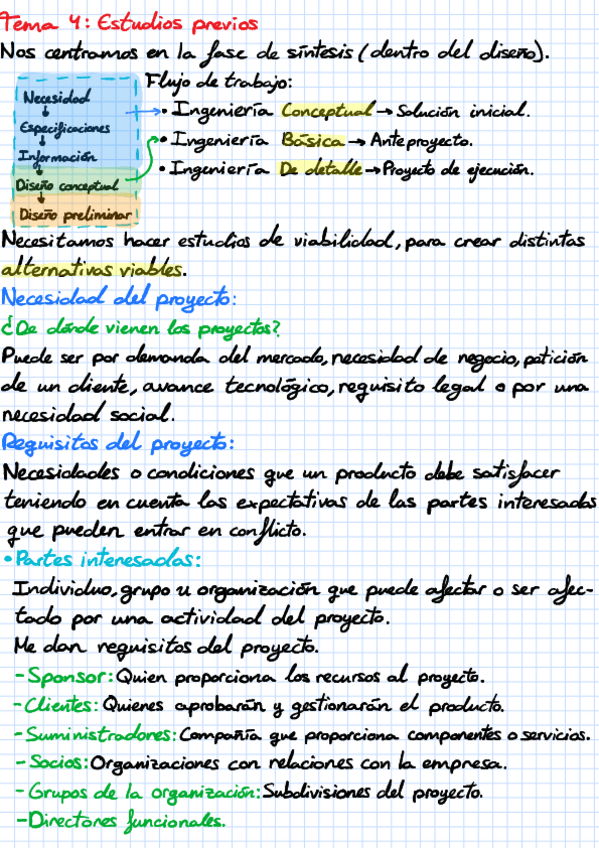 Tema 4: Estudios previos
Nos centramos en la fase de síntesis (dentro del diseño).
Flujo de trabajo:
Necesidad
Especificaciones
Información
Diseño conceptual
Diseño preliminar
• Ingeniería Conceptual → Solución inicial.
• Ingeniería Básica → Anteproyecto.
• Ingeniería De detalle → Proyecto de ejecución.
Necesitamos hacer estudios de viabilidad, para crear distintas
alternativas viables.
Necesidad del proyecto:
¿De dónde vienen los proyectos?
Puede ser por demanda del mercado, necesidad de negocio, petición
de un cliente, avance tecnológico, requisito legal o por una
necesidad social.
Requisitos del proyecto:
Necesidades o condiciones que un producto debe satisfacer
teniendo en cuenta las expectativas de las partes interesadas
que pueden entrar en conflicto.
• Partes interesadas:
Individuo, grupo u organización que puede afectar o ser afec-
tado por una actividad del proyecto.
Me dan requisitos del proyecto.
- Sponsor: Quien proporciona los recursos al proyecto.
- Clientes: Quienes aprobarán y gestionarán el producto.
- Suministradores: Compañía que proporciona componentes o servicios.
- Socios: Organizaciones con relaciones con la empresa.
- Grupos de la organización: Subdivisiones del proyecto.
- Directores funcionales.